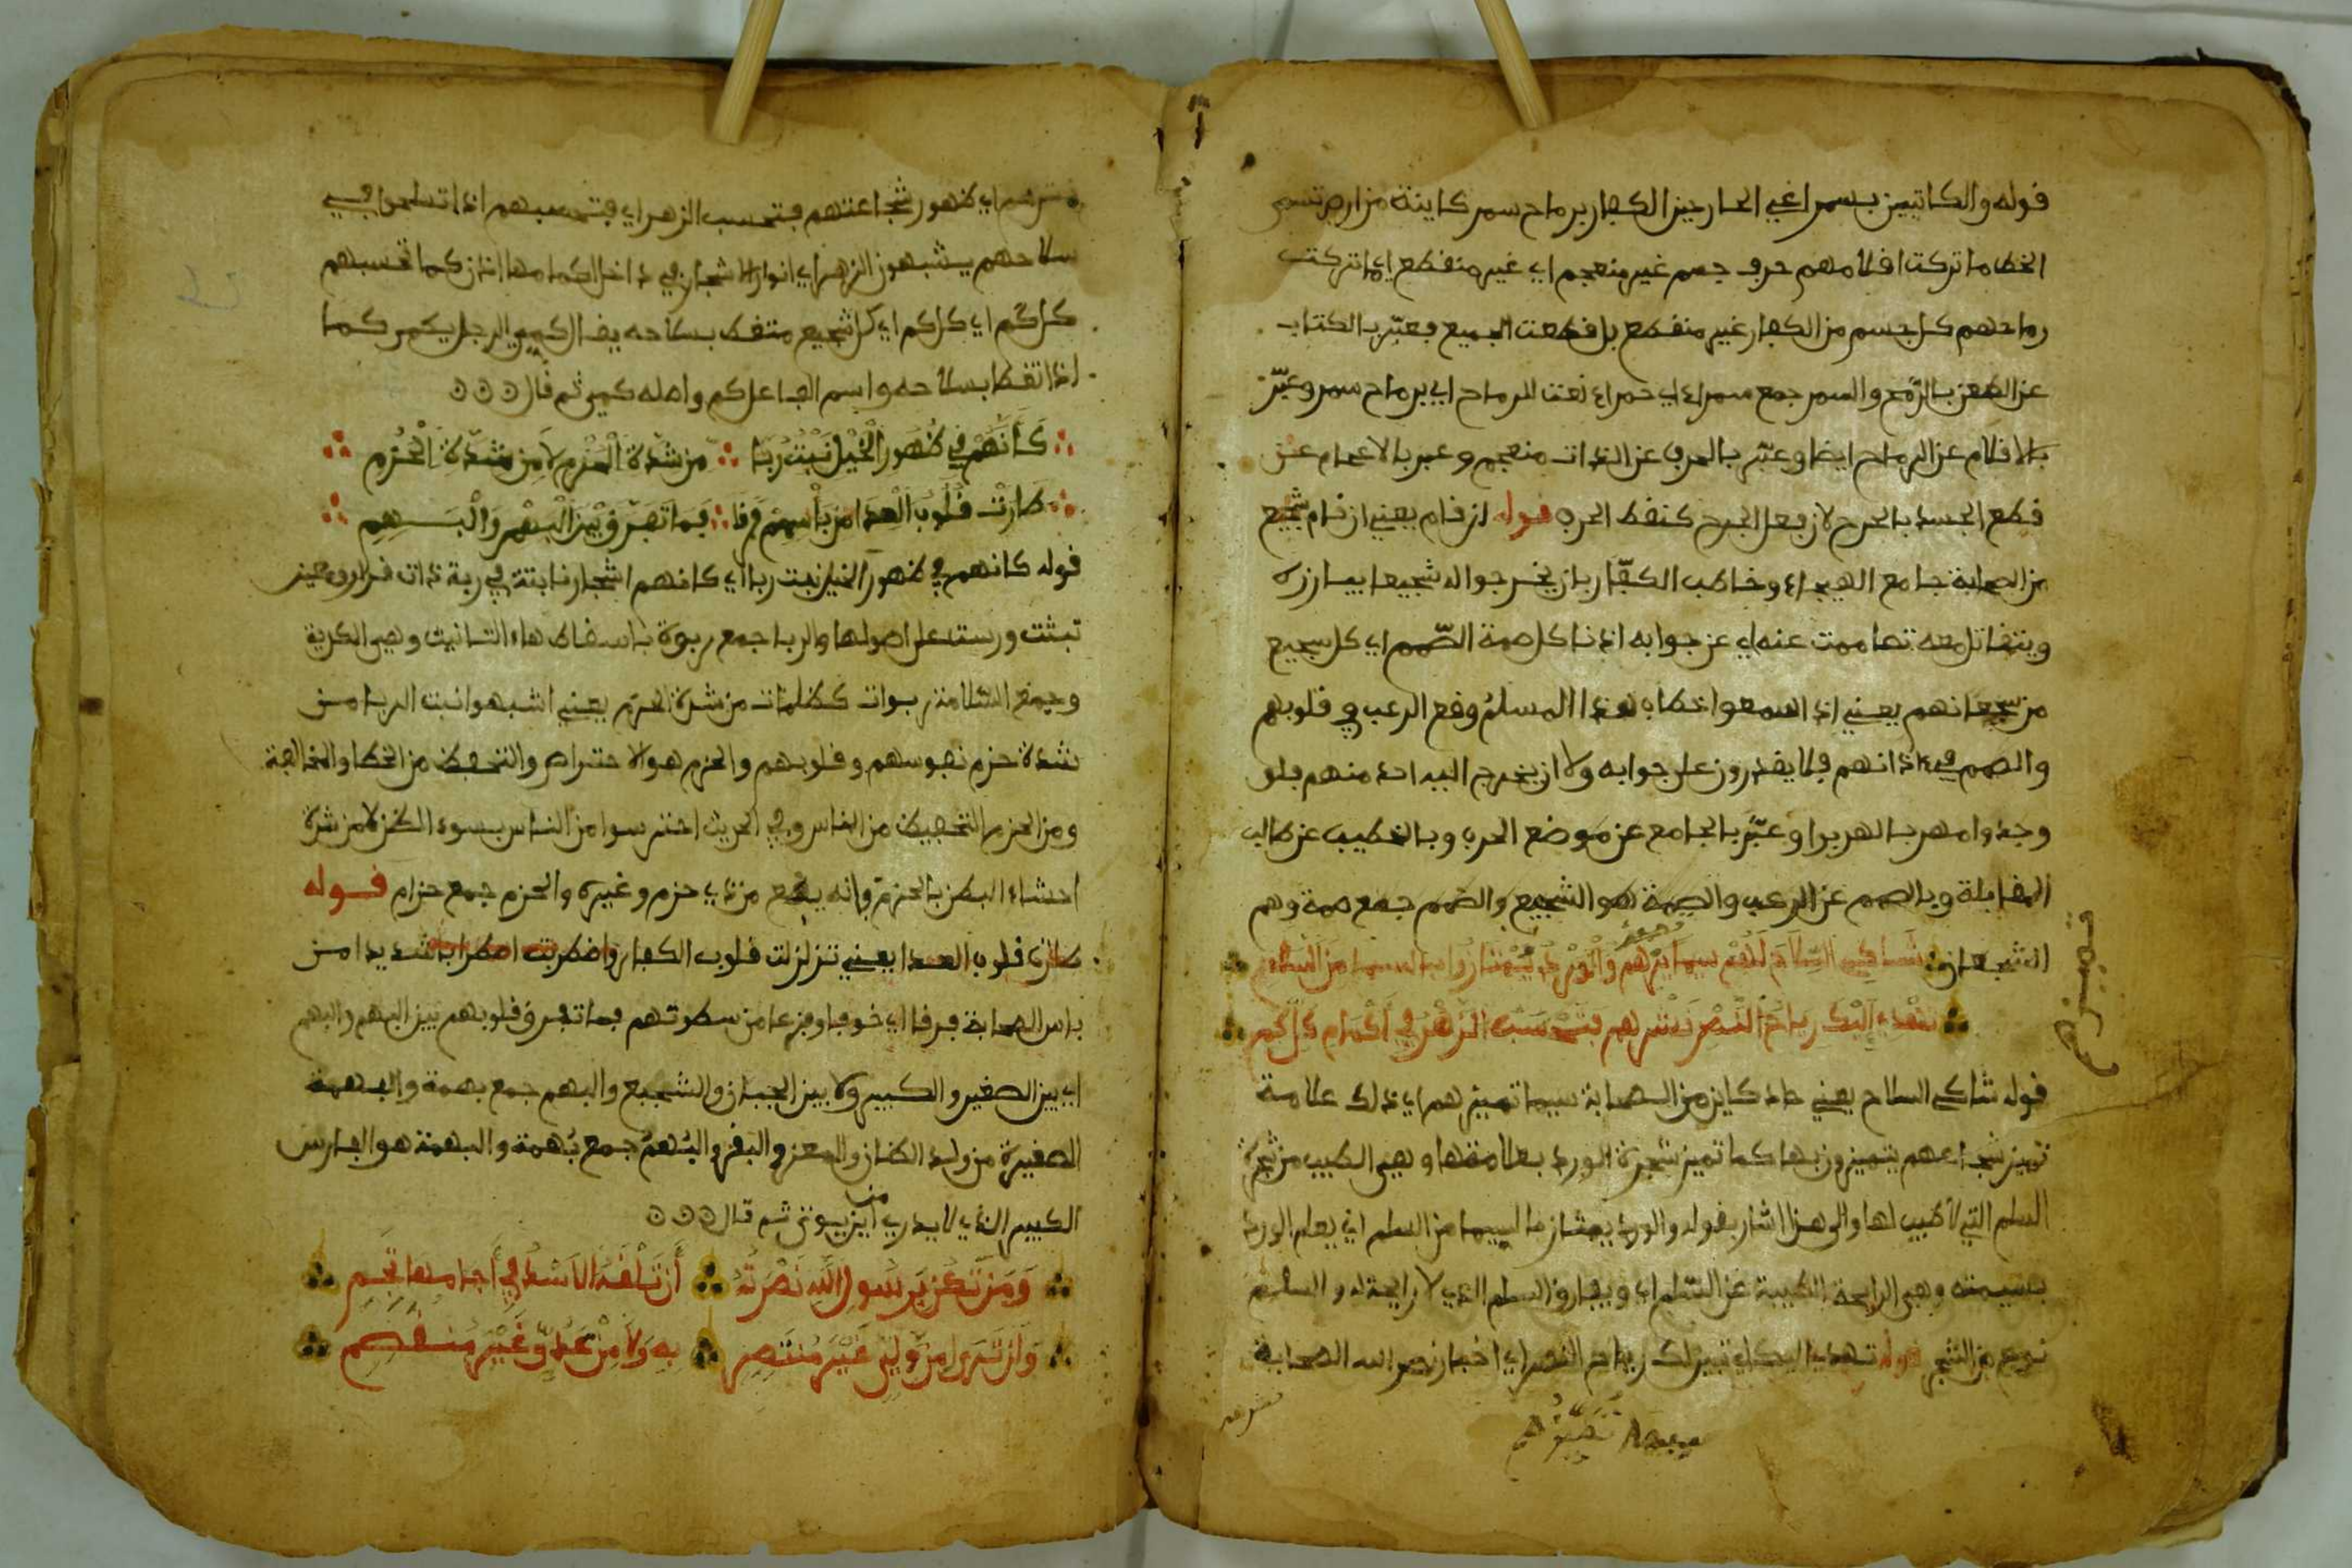 قوله والكاتبين بسمر اعني الضاربين الكفار برماح سمر كاينة من ارض تسمى
الخط ما تركت افلامهم حرف جسم غير منعجم اي غير منقطع اي ما تركت
رماحهم كل جسم من الكفار غير منقطع بل قطعت الجميع فعبّر بالكتاب
عن الطعن بالرّمح والسمر جمع سمراء اي حمراء نعت للرماح اي برماح سمر وعبّر
بالاقلام عن الرماح ايضا وعبّر بالحرف عن الذات منعجم وعبر بالاعجام عن
قطع الجسد بالجرح لان فعل الجرح كنقط الحرف قوله ان قام يعني ان قام شجيع
من الصحابة جامع الهيجاء وخاطب الكفّار بان يخرجوا له شجيعا يبارزه
ويتقاتل معه تصاممت عنه اي عن جوابه اذنا كل صمة الصّمم اي كل شجيع
من شجعانهم يعني اذا سمعوا خطاب هذا المسلم وقع الرعب في قلوبهم
والصمم في اذانهم فلا يقدرون على جوابه ولا ان يخرج اليه احد منهم بلو
وجدوا مهربا لهربوا وعبّر بالجامع عن موضع الحرب وبالخطيب عن طالب
المقابلة وبالصمم عن الرعب والصمة هو الشجيع والصمم جمع صمة وهم
الشجعان شاكي السلاح لهم سيما تميزهم والورد يمتاز بالسيما من السلم
تهدي اليك رياح النصر نشرهم فتحسب الزهر في اكمام كل كم
قوله شاكي السلاح يعني حاد كاين من الصحابة سيما تميزهم اي ذلك علامة
تميز شجاعهم يتميزون بها كما تميز شجرة الورد بعلامتها وهي الطيب من شجرة
السلم التي لا طيب لها والى هذا اشار بقوله والورد يمتاز بالسيما من السلم اي يعلم الورد
بسيمته وهي الرايحة الطيبة عن السلم اي ويفارق السلم الذي لا رايحة له والسلم
نوع من الشجر قوله تهدي اليك اي تبين لك رياح النصر اي اخبار نصر الله الصحابة
نشرهم
نشرهم اي ظهور شجاعتهم فتحسب الزهر اي فتحسبهم اذا تسلحوا في
سلاحهم يشبهون الزهر اي انوار الاشجار في داخل اكمامها اذن كما تحسبهم
كل كم اي كل كم اي كل شجيع متغط بسلاحه يقال كمي الرجل يكمي كما
اذا تغطا بسلاحه واسم الفاعل كم واصله كمي ثم قال
كَأَنَّهُمْ فِي ظُهُورِ الْخَيْلِ نَبْتُ رُبًا من شدّة الْحَزْمِ لا من شدّة الْحُزُمِ
طَارَتْ قُلُوبُ الْعِدَا مِنْ بَأْسِهِمْ فَرَقًا فَمَا تُفَرِّقُ بَيْنَ الْبَهْمِ وَالْبُهَمِ
قوله كانهم في ظهور الخيل نبت ربا اي كانهم اشجار نابتة في ربة ذات قرار ومعين
تبثت ورست على اصولها والربا جمع ربوة باسقاط هاء التانيث وهي الكرية
وجمع السلامة ربوات كظلمات من شدة الحزم يعني اشبهوا نبت الربا من
شدة حزم نفوسهم وقلوبهم والحزم هو الاحتراص والتحفظ من الخطا والمخالفة
ومن الحزم التحفيظ من الناس وفي الحديث احترسوا من الناس بسوء الظن لا من شدة
احشاء البطن بالحزم فانه يقع من ذي حزم وغيره والحزم جمع حزام قوله
طارت قلوب العدا يعني تزلزلت قلوب الكفار واضطربت اضطرابا شديدا من
باس الصحابة فرقا اي خوفا وفزعا من سطوتهم فما تفرق قلوبهم بين البهم والبهم
اي بين الصغير والكبير ولا بين الجبان والشجيع والبهم جمع بهمة والبهمة
الصغيرة من ولد الضان والمعز والبقر والبُهم جمع بُهمة والبهمة هو الفارس
الكبير الذي لا يدري من اين يوتى ثم قال
وَمَن تَكُن بِرَسُولِ اللهِ نَصْرَتُهُ أن تَلْقَهُ الاسْدُ فِي أَجَامِهَا تَجِمِ
وَلَنْ تَرَى مِن وَلِيٍّ غَيْرِ مُنْتَصِرٍ بِهِ وَلَا مِنْ عَدُوٍّ غَيْرِ مُنْقَصِمِ